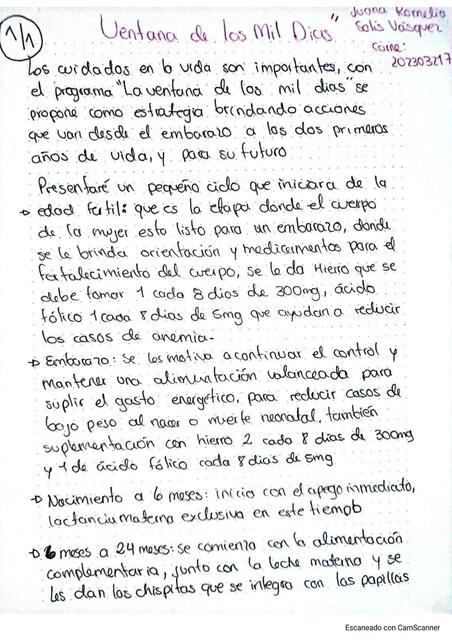 1/1
Ventana de los Mil Dias"
Juana Kornelia
Solis Vásquez
Carne:
202303217
Los cuidados en la vida son importantes, con
el programa "La ventana de los mil dias" se
propone como estrategia brindando acciones
que van desde el embarazo a los dos primeros
años de vida, y para su futuro
Presentaré un pequeño ciclo que iniciara de la
→ edad fertil: que es la etapa donde el cuerpo
de la mujer esta listo para un embarazo, donde
se le brinda orientación y medicamentos para el
fortalecimiento del cuerpo, se le da Hierro que se
debe tomar 1 cada 8 dias de 300mg, ácido
fólico 1 cada 8 dias de 5mg que ayudan a reducir
los casos de anemia.
→ Embarazo: se les motiva a continuar el control y
mantener una alimentación valanceada para
suplir el gasto energético, para reducir casos de
bajo peso al nacer o muerte neonatal, también
suplementación con hierro 2 cada 8 dias de 300mg
y 1 de ácido fólico cada 8 dias de 5mg
→ Nacimiento a 6 meses: inicia con el apego inmediato,
lactancia materna exclusiva en este tiempo
→ 6 meses a 24 meses: se comienza con la alimentación
complementaria, junto con la leche materna y se
les dan las chispitas que se integra con las papillas
Escaneado con CamScanner